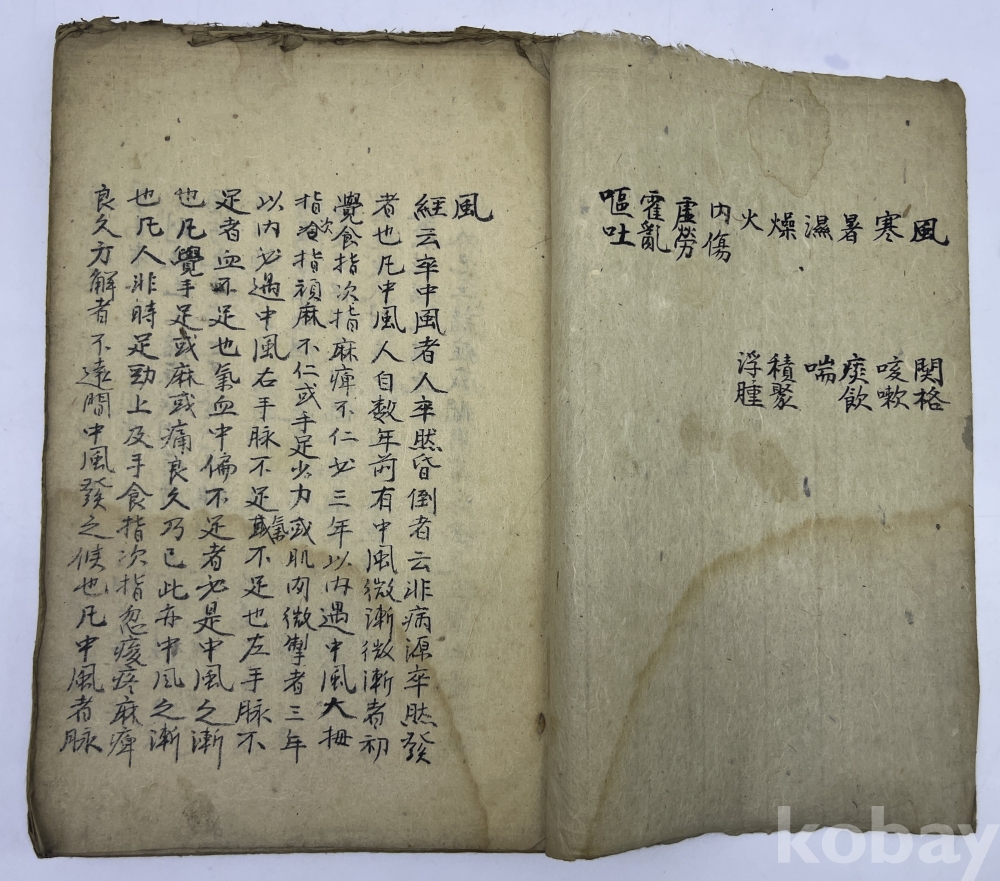 風
寒
暑
濕
燥
火
内傷
虛勞
霍亂
嘔吐
関格
咳嗽
痰飲
喘
積聚
浮腫
風
經云卒中風者人卒然昏倒者云非病源卒然發
者也凡中風人自数年前有中風微漸微漸者初
覺食指次指麻痺不仁必三年以内遇中風大拇
指次指頑麻不仁或手足少力或肌肉微掣者三年
以内必遇中風右手脉不足氣不足也左手脉不
足者血不足也氣血中偏不足者必是中風之漸
也凡覺手足或麻或痛良久乃已此亦中風之漸
也凡人非時足勁上及手食指次指忽痠疼麻痺
良久方解者不遠間中風發之候也凡中風者脉
kobay